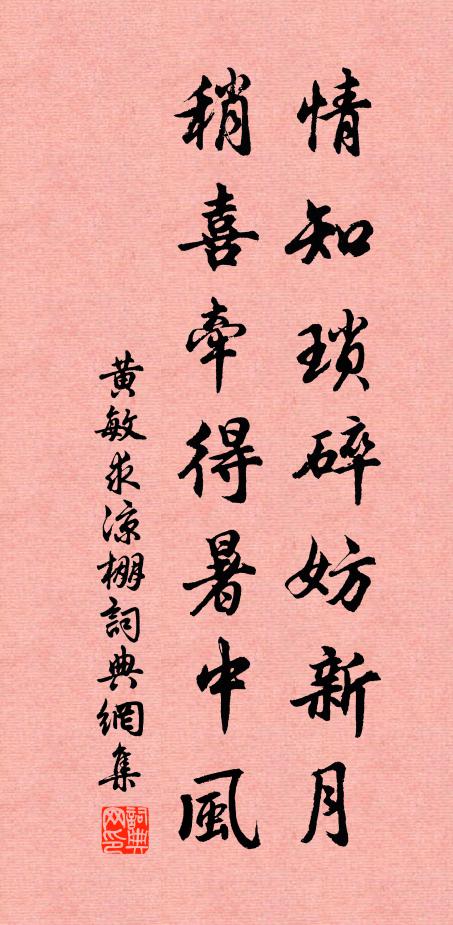 情知瑣碎妨新月
稍喜牽得暑中風
黃敏求涼棚詞典網集
詞典网印